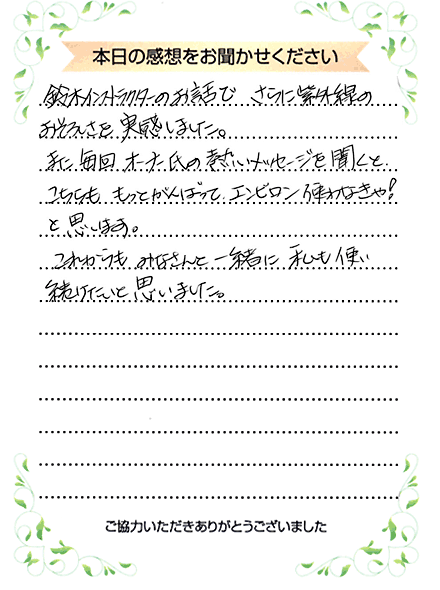 本日の感想をお聞かせください
鈴木インストラクターのお話で さらに紫外線の
おそろしさを実感しました。
また毎回 オーナー氏の熱いメッセージを聞くと
こちらも もっとがんばって エンビロン使わなきゃ!
と思います。
これからも みなさんと一緒に 私も使い
続けたいと思いました。
ご協力いただきありがとうございました